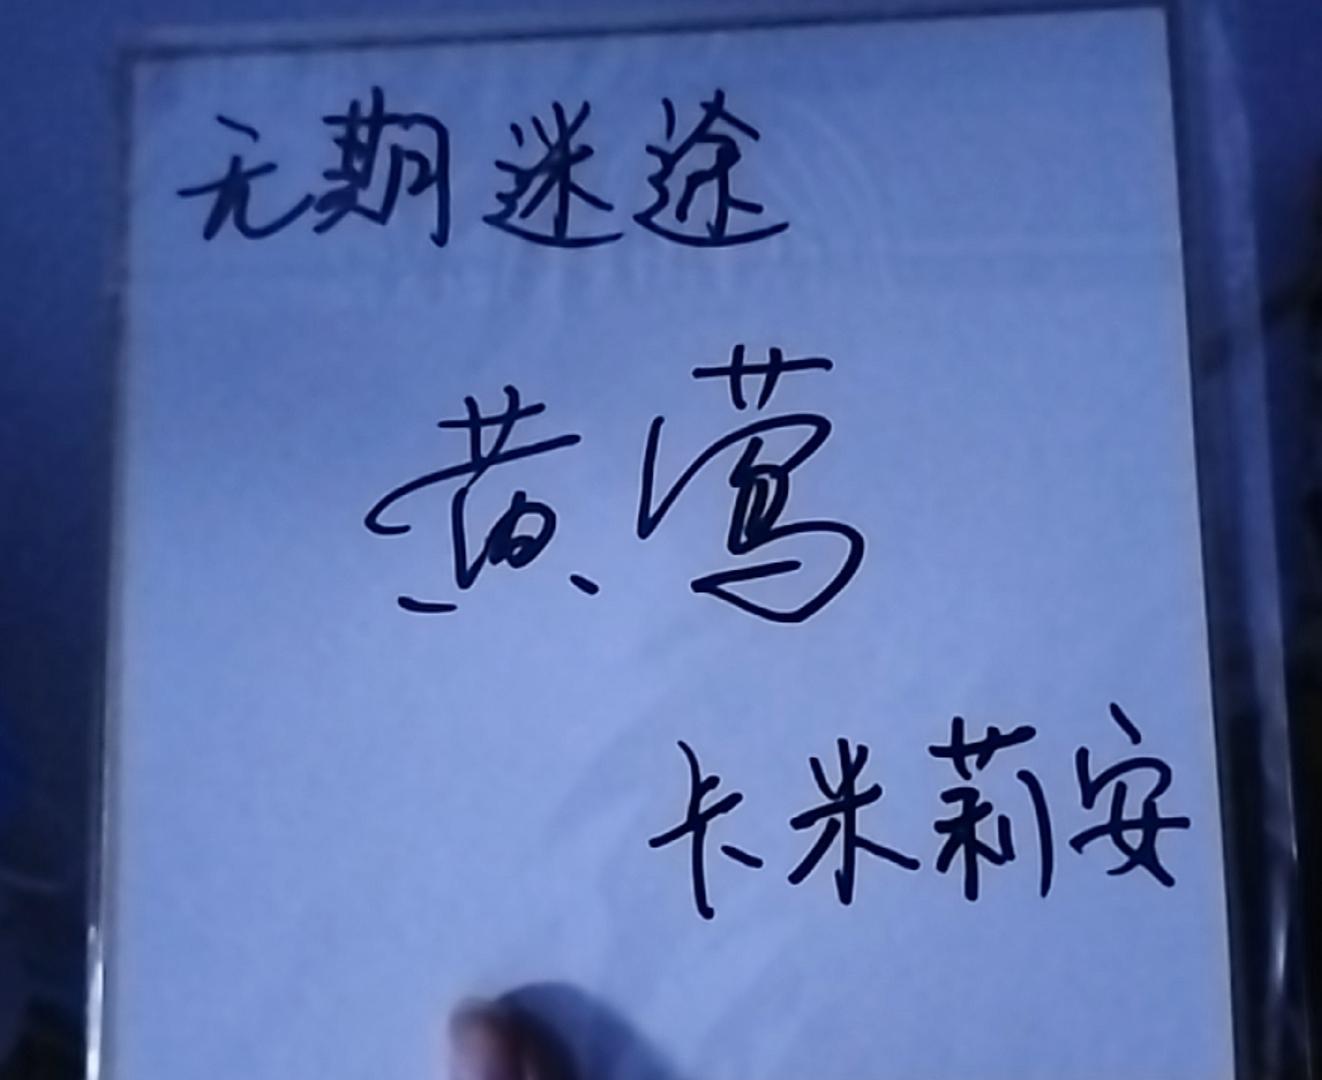 无期迷途
黄莺
卡米莉安